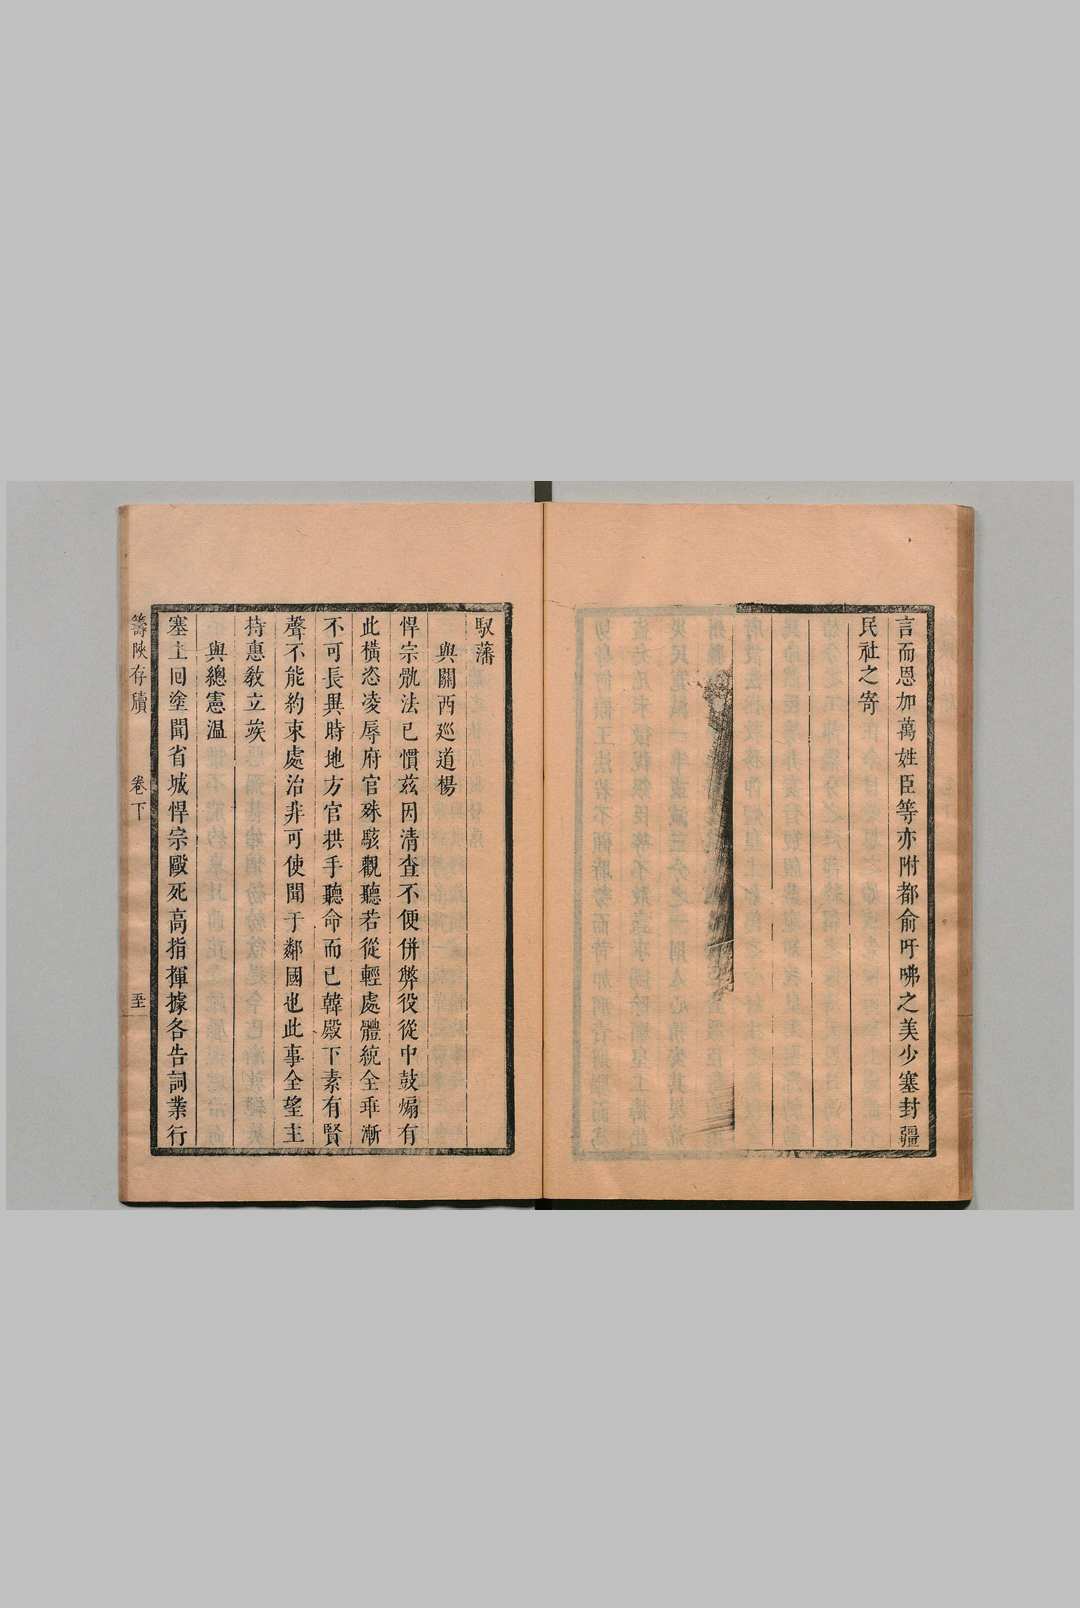 言而恩加萬姓臣等亦附都俞吁咈之美少塞封疆
民社之寄
馭藩
與關西廵道楊
悍宗骫法已慣茲因清查不便併弊役從中鼓煽有
此橫恣凌辱府官殊駭觀聽若從輕處體統全乖漸
不可長異時地方官拱手聽命而已韓殿下素有賢
聲不能約束處治非可使聞于鄰國也此事全望主
持惠敎立竢
與總憲溫
塞上回塗聞省城悍宗毆死高指揮據各告詞業行
籌陜存牘 卷下